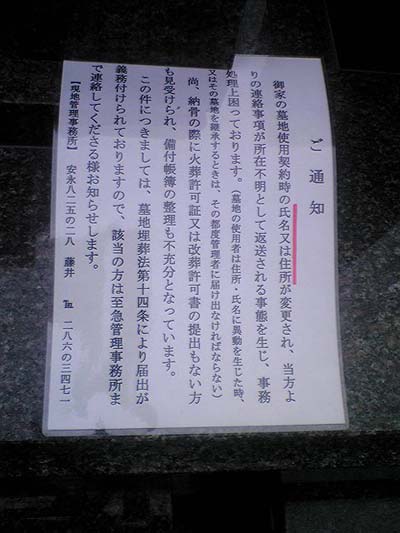 ご通知
御家の墓地使用契約時の氏名又は住所が変更され、当方よ
りの連絡事項が所在不明として返送される事態を生じ、事務
処理上困っております。（墓地の使用者は住所・氏名に異動を生じた時、
又はその墓地を継承するときは、その都度管理者に届け出なければならない）
尚、納骨の際に火葬許可証又は改葬許可書の提出もない方
も見受けられ、備付帳簿の整理も不充分となっています。
この件につきましては、墓地埋葬法第十四条により届出が
義務付けられておりますので、該当の方は至急管理事務所ま
で連絡してくださる様お知らせします。
【現地管理事務所】 安永八二五の二八 藤井 ℡ 二八六の三四七一